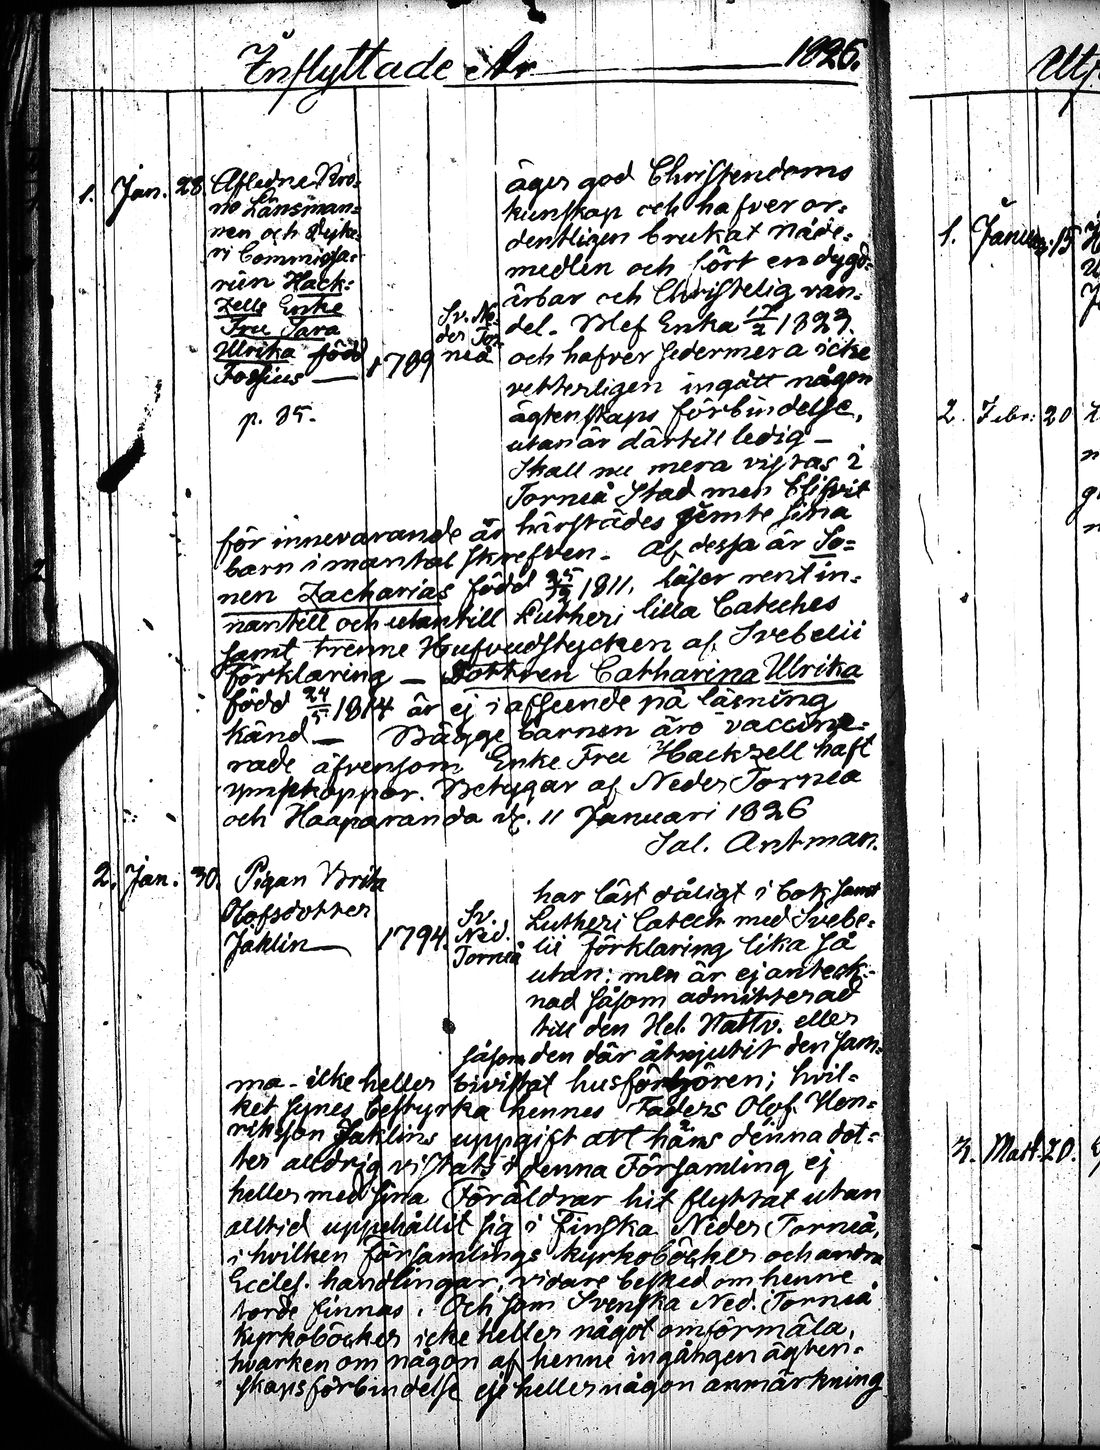 Inflyttade År 1826.
1. Jan. 28. Afledne Cro-
no Länsman-
nen och
ri Commissa-
rien Hack-
zells Enka
Fru Sara
Ulrika född
Fossius — 1789
p. 85.
Sv. Ne-
der Tor-
neå
äger god Christendoms
kunskap och hafver or-
dentligen brukat Nåde-
medlen och fört en dygd-
ärbar och Christelig van-
del. Blef Enka 17/2 1823.
och hafver sedermera icke
vetterligen ingått någon
ägtenskaps förbindelse,
utan är därtill ledig —
Skall nu mera vistas i
Torneå Stad men blifvit
för innevarande år härstädes jemte sina
barn i mantal skrefven. Af dessa är So-
nen Zacharias född 1811, läser rent in-
nantill och utantill Lutheri lilla Cateches
samt trenne Hufvudstycken af Svebelii
förklaring — Dottren Catharina Ulrika
född 24/5 1814 är ej i afseende på läsning
känd — Bägge barnen äro vaccine-
rade äfvensom Enke Fru Hackzell haft
ympkoppor. Betygar af Neder Torneå
och Haaparanda d. 11 Januari 1826
Sal. Antman.
2. Jan. 30. Pigan Brita
Olofsdotter
Jaklin — 1794.
Sv.
Ned.
Torneå
har läst dåligt i bok samt
Lutheri Catech med Svebe-
lii förklaring lika så
utan; men är ej anteck-
nad såsom admitterad
till den Hel. Nattv. eller
såsom den där åtnjutit den sam-
ma - icke heller bivistat husförhören; hvil-
ket synes bestyrka hennes Faders Olof Hen-
riksson Jaklins uppgift att hans denna dot-
ter alldrig vistats i denna Församling ej
heller med sina Föräldrar hit flyttat utan
alltid uppehållit sig i Finska Neder Torneå,
i hvilken Församlings kyrkoböcker och andra
Eccles. handlingar, vidare besked om henne
torde finnas. Och som Svenska Ned. Torneå
kyrkoböcker icke heller något omförmäla,
hvarken om någon af henne ingången ägten-
skapsförbindelse eje heller någon anmärkning
Utf
1. Janu. 15
2. Febr. 20
3. Mart. 20.